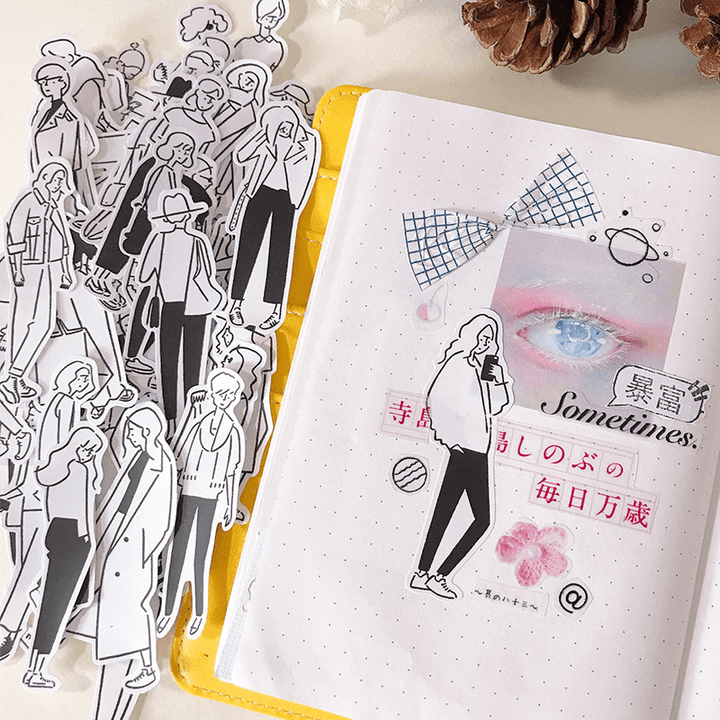 暴富
Sometimes.
寺島しのぶの
毎日万歳
～其の八十三～
@